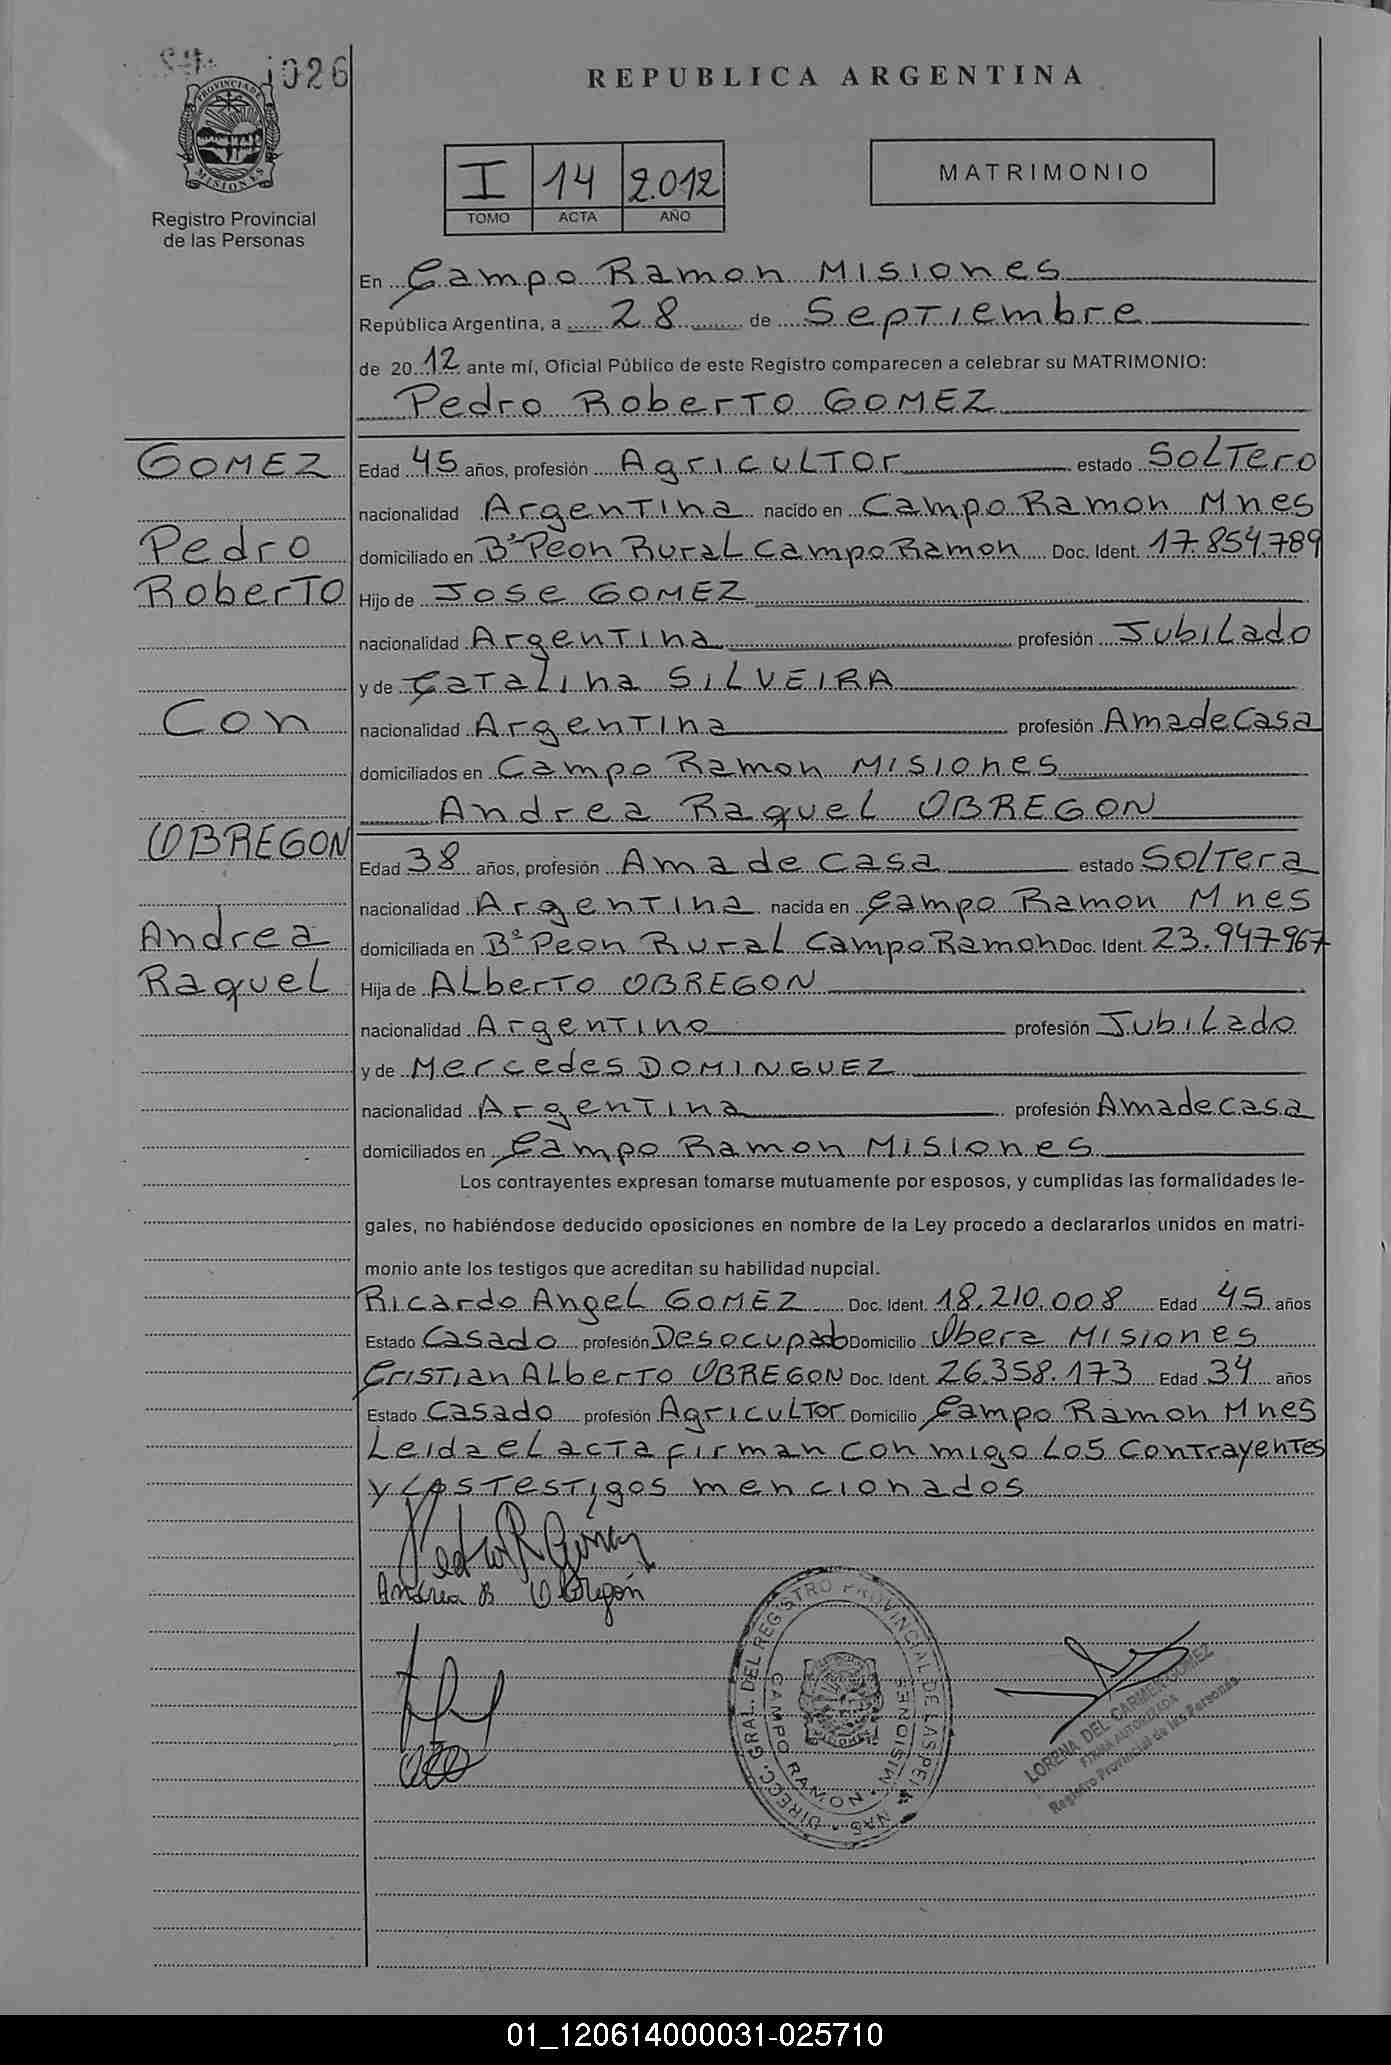 1026
PROVINCIA DE
MISIONES
Registro Provincial
de las Personas
REPUBLICA ARGENTINA
I 14 2.012
TOMO ACTA AÑO
MATRIMONIO
En Campo Ramon Misiones
República Argentina, a 28 de Septiembre
de 2012 ante mí, Oficial Público de este Registro comparecen a celebrar su MATRIMONIO:
Pedro Roberto GOMEZ
GOMEZ
Pedro
Roberto
Con
OBREGON
Andrea
Raquel
Edad 45 años, profesión Agricultor estado Soltero
nacionalidad Argentina nacido en Campo Ramon Mnes
domiciliado en Bº Peon Rural Campo Ramon Doc. Ident. 17.854.789
Hijo de Jose GOMEZ
nacionalidad Argentina profesión Jubilado
y de Catalina SILVEIRA
nacionalidad Argentina profesión Ama de Casa
domiciliados en Campo Ramon Misiones
Andrea Raquel OBREGON
Edad 38 años, profesión Ama de casa estado Soltera
nacionalidad Argentina nacida en Campo Ramon Mnes
domiciliada en Bº Peon Rural Campo Ramon Doc. Ident. 23.947.967
Hija de Alberto OBREGON
nacionalidad Argentino profesión Jubilado
y de Mercedes DOMINGUEZ
nacionalidad Argentina profesión Ama de casa
domiciliados en Campo Ramon Misiones
Los contrayentes expresan tomarse mutuamente por esposos, y cumplidas las formalidades le-
gales, no habiéndose deducido oposiciones en nombre de la Ley procedo a declararlos unidos en matri-
monio ante los testigos que acreditan su habilidad nupcial.
Ricardo Angel GOMEZ Doc. Ident. 18.210.008 Edad 45 años
Estado Casado profesión Desocupado Domicilio Obera Misiones
Cristian Alberto OBREGON Doc. Ident. 26.358.173 Edad 34 años
Estado Casado profesión Agricultor Domicilio Campo Ramon Mnes
Leida el acta firman con migo Los Contrayentes
y Los Testigos mencionados
Pedro R Gómez
Andrea R Obregón
DIRECC. GRAL. DEL REGISTRO PROVINCIAL DE LAS PER NAS
CAMPO RAMON - MISIONES
LORENA DEL CARMEN GOMEZ
FIRMA AUTORIZADA
Registro Provincial de las Personas
01_120614000031-025710